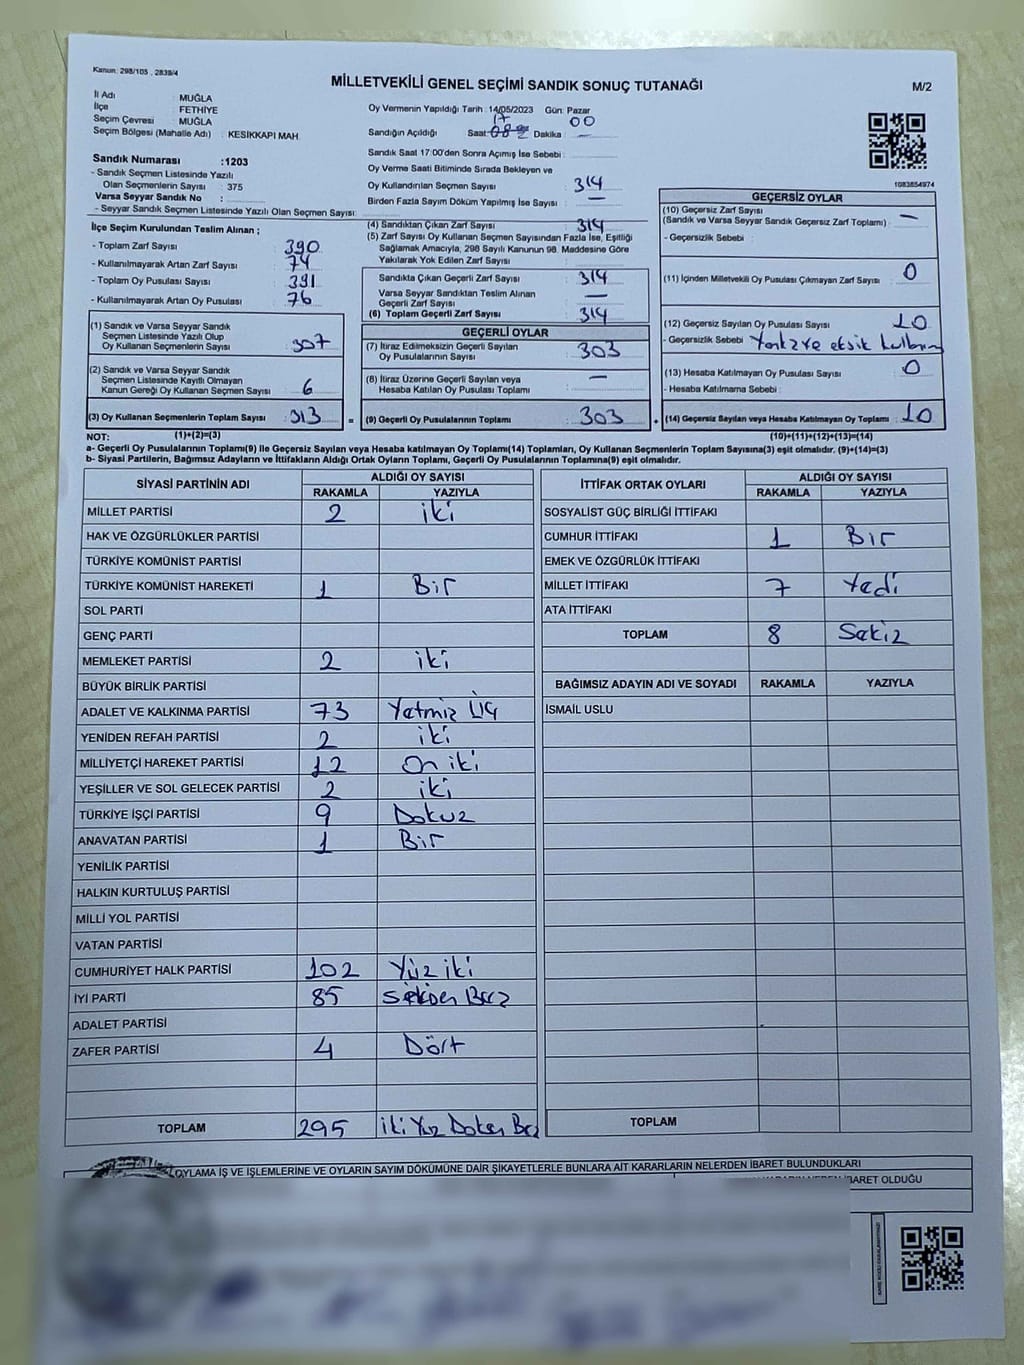 Kanun: 298/105 , 2839/4
MİLLETVEKİLİ GENEL SEÇİMİ SANDIK SONUÇ TUTANAĞI
M/2
İl Adı : MUĞLA
İlçe : FETHİYE
Seçim Çevresi : MUĞLA
Seçim Bölgesi (Mahalle Adı) : KESİKKAPI MAH.
Sandık Numarası :1203
- Sandık Seçmen Listesinde Yazılı
Olan Seçmenlerin Sayısı : 375
Varsa Seyyar Sandık No :
- Seyyar Sandık Seçmen Listesinde Yazılı Olan Seçmen Sayısı:
İlçe Seçim Kurulundan Teslim Alınan ;
- Toplam Zarf Sayısı : 390
- Kullanılmayarak Artan Zarf Sayısı : 74
- Toplam Oy Pusulası Sayısı : 391
- Kullanılmayarak Artan Oy Pusulası : 76
(1) Sandık ve Varsa Seyyar Sandık
Seçmen Listesinde Yazılı Olup
Oy Kullanan Seçmenlerin Sayısı : 307
(2) Sandık ve Varsa Seyyar Sandık
Seçmen Listesinde Kayıtlı Olmayan
Kanun Gereği Oy Kullanan Seçmen Sayısı : 6
(3) Oy Kullanan Seçmenlerin Toplam Sayısı : 313 =
Oy Vermenin Yapıldığı Tarih : 14/05/2023 Gün: Pazar
17 00
Sandığın Açıldığı Saat: Dakika : —
Sandık Saat 17:00'den Sonra Açılmış İse Sebebi :
Oy Verme Saati Bitiminde Sırada Bekleyen ve
Oy Kullandırılan Seçmen Sayısı : 314
Birden Fazla Sayım Döküm Yapılmış İse Sayısı : —
(4) Sandıktan Çıkan Zarf Sayısı : 314
(5) Zarf Sayısı Oy Kullanan Seçmen Sayısından Fazla İse, Eşitliği
Sağlamak Amacıyla, 298 Sayılı Kanunun 98. Maddesine Göre
Yakılarak Yok Edilen Zarf Sayısı :
Sandıkta Çıkan Geçerli Zarf Sayısı : 314
Varsa Seyyar Sandıktan Teslim Alınan
Geçerli Zarf Sayısı : —
(6) Toplam Geçerli Zarf Sayısı : 314
GEÇERLİ OYLAR
(7) İtiraz Edilmeksizin Geçerli Sayılan
Oy Pusulalarının Sayısı : 303
(8) İtiraz Üzerine Geçerli Sayılan veya
Hesaba Katılan Oy Pusulaları Toplamı : —
(9) Geçerli Oy Pusulalarının Toplamı : 303
1083854974
GEÇERSİZ OYLAR
(10) Geçersiz Zarf Sayısı
(Sandık ve Varsa Seyyar Sandık Geçersiz Zarf Toplamı) : —
- Geçersizlik Sebebi :
(11) İçinden Milletvekili Oy Pusulası Çıkmayan Zarf Sayısı : 0
(12) Geçersiz Sayılan Oy Pusulası Sayısı : 10
- Geçersizlik Sebebi : eksik
(13) Hesaba Katılmayan Oy Pusulası Sayısı : 0
- Hesaba Katılmama Sebebi :
(14) Geçersiz Sayılan veya Hesaba Katılmayan Oy Toplamı : 10
NOT: (1)+(2)=(3) (10)+(11)+(12)+(13)=(14)
a- Geçerli Oy Pusulalarının Toplamı(9) ile Geçersiz Sayılan veya Hesaba katılmayan Oy Toplamı(14) Toplamları, Oy Kullanan Seçmenlerin Toplam Sayısına(3) eşit olmalıdır. (9)+(14)=(3)
b- Siyasi Partilerin, Bağımsız Adayların ve İttifakların Aldığı Ortak Oyların Toplamı, Geçerli Oy Pusulalarının Toplamına(9) eşit olmalıdır.
SİYASİ PARTİNİN ADI ALDIĞI OY SAYISI
RAKAMLA YAZIYLA
MİLLET PARTİSİ 2 iki
HAK VE ÖZGÜRLÜKLER PARTİSİ
TÜRKİYE KOMÜNİST PARTİSİ
TÜRKİYE KOMÜNİST HAREKETİ 1 Bir
SOL PARTİ
GENÇ PARTİ
MEMLEKET PARTİSİ 2 iki
BÜYÜK BİRLİK PARTİSİ
ADALET VE KALKINMA PARTİSİ 73 Yetmiz Üç
YENİDEN REFAH PARTİSİ 2 iki
MİLLİYETÇİ HAREKET PARTİSİ 12 On iki
YEŞİLLER VE SOL GELECEK PARTİSİ 2 iki
TÜRKİYE İŞÇİ PARTİSİ 9 Dokuz
ANAVATAN PARTİSİ 1 Bir
YENİLİK PARTİSİ
HALKIN KURTULUŞ PARTİSİ
MİLLİ YOL PARTİSİ
VATAN PARTİSİ
CUMHURİYET HALK PARTİSİ 102 Yüz iki
İYİ PARTİ 85
ADALET PARTİSİ
ZAFER PARTİSİ 4 Dört
TOPLAM 295 iki Yüz
İTTİFAK ORTAK OYLARI ALDIĞI OY SAYISI
RAKAMLA YAZIYLA
SOSYALİST GÜÇ BİRLİĞİ İTTİFAKI
CUMHUR İTTİFAKI 1 Bir
EMEK VE ÖZGÜRLÜK İTTİFAKI
MİLLET İTTİFAKI 7 Yedi
ATA İTTİFAKI
TOPLAM 8 Sekiz
BAĞIMSIZ ADAYIN ADI VE SOYADI RAKAMLA YAZIYLA
İSMAİL USLU
TOPLAM
OYLAMA İŞ VE İŞLEMLERİNE VE OYLARIN SAYIM DÖKÜMÜNE DAİR ŞİKAYETLERLE BUNLARA AİT KARARLARIN NELERDEN İBARET BULUNDUKLARI
İBARET OLDUĞU